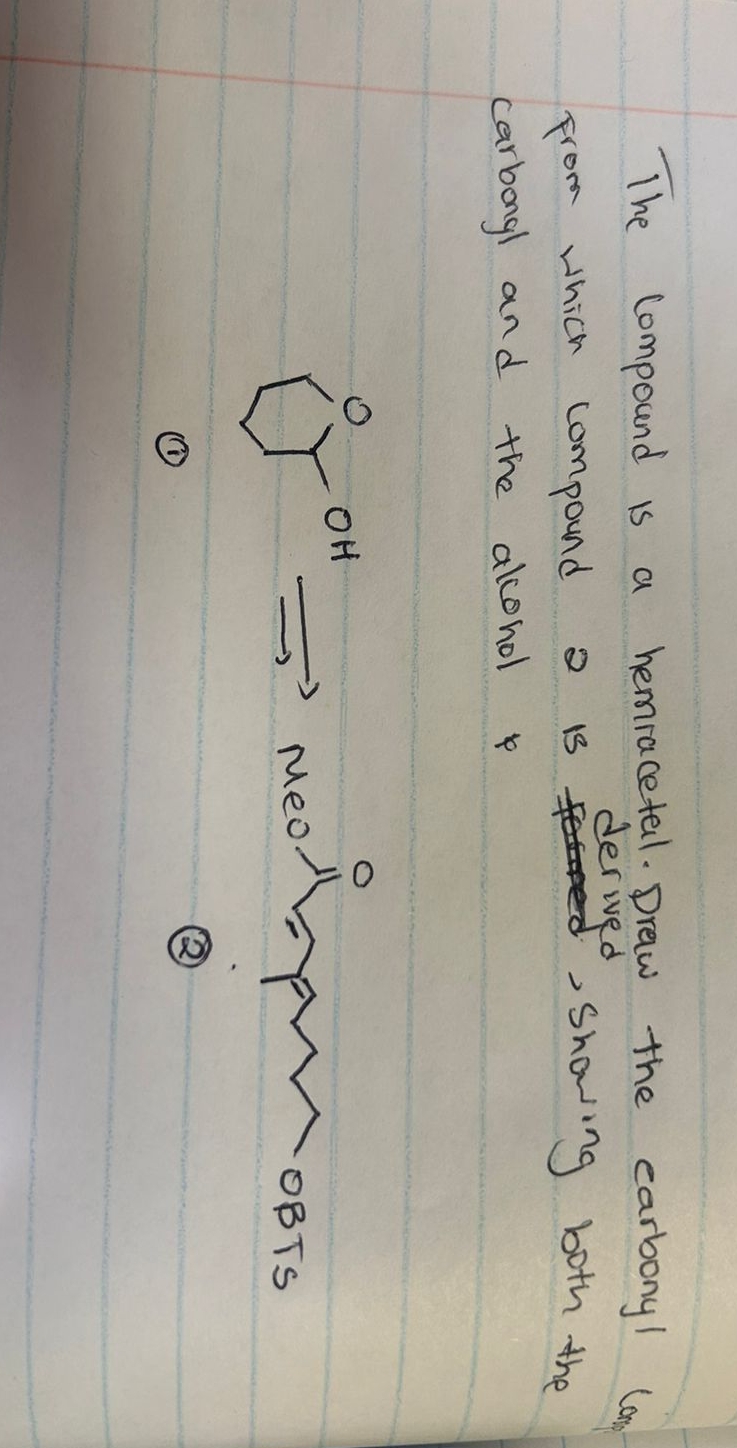 The Compound is a hemiacetal. Draw the carbonyl Comp
From which Compound 2 is formed derived, Showing both the
carbonyl and the alcohol &
O
OH
MeO
O
OBTS
①
②